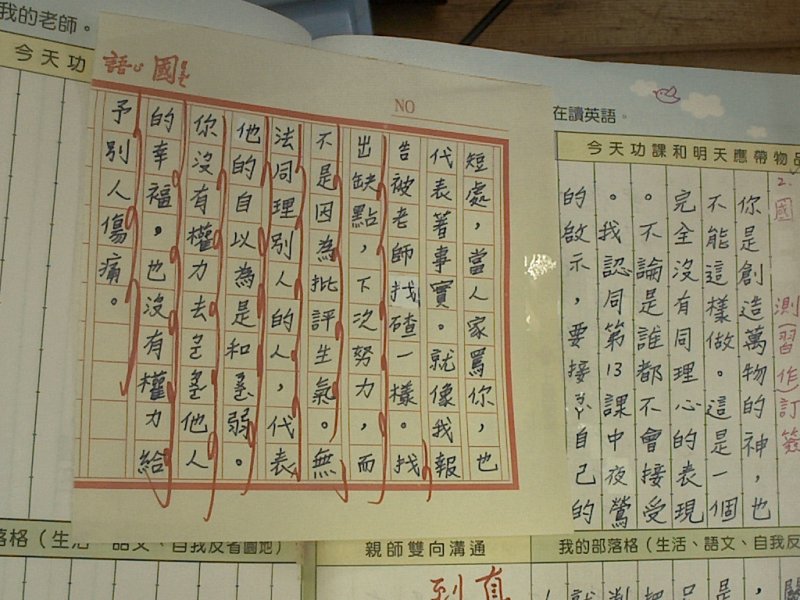 我的老師。
今天功
在讀英語。
今天功課和明天應帶物品
2. 國
測（習作）訂簽
你是創造萬物的神，也
不能這樣做。這是一個
完全沒有同理心的表現
。不論是誰都不會接受
。我認同第13課中夜鶯
的啟示，要接自己的
NO
短處，當人家罵你，也
代表著事實。就像我報
告被老師找碴一樣。找
出缺點，下次努力，而
不是因為批評生氣。無
法同理別人的人，代表
他的自以為是和弱。
你沒有權力去他人
的幸福，也沒有權力給
予別人傷痛。
落格（生活、語文、自我反省園地）
親師雙向溝通
我的部落格（生活、語文、自我反
到真